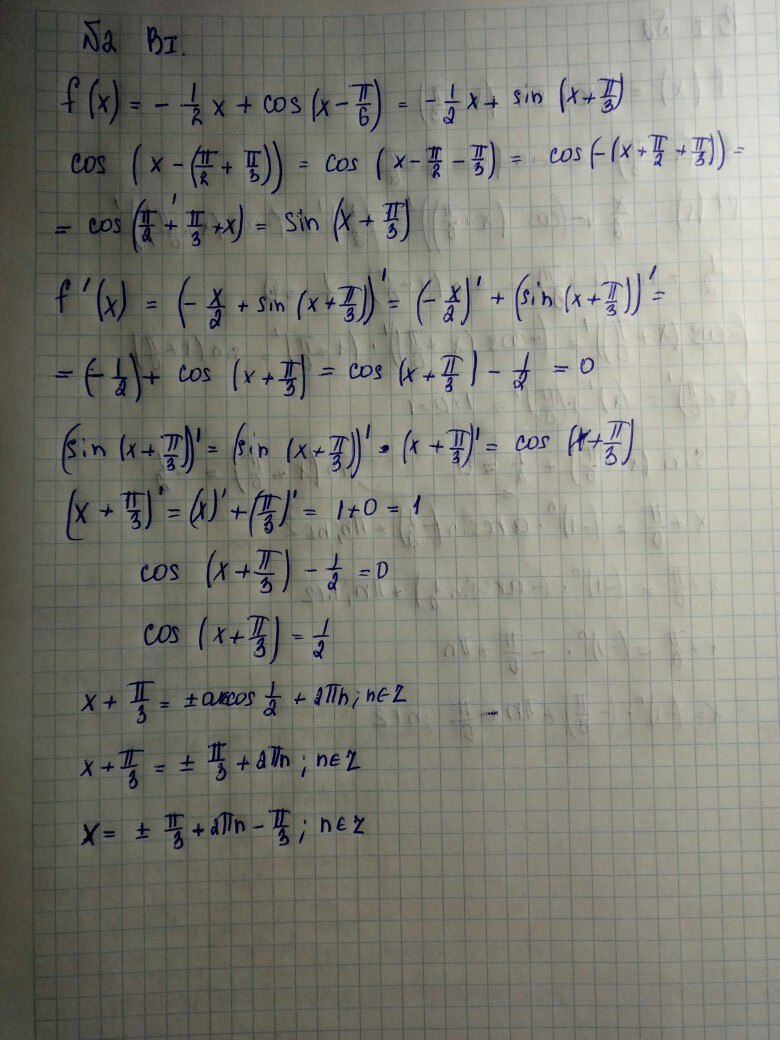 №2 BI.
f(x) = - 1/2 x + cos (x - π/6) = - 1/2 x + sin (x + π/3)
cos (x - (π/2 + π/3)) = cos (x - π/2 - π/3) = cos (-(x + π/2 + π/3)) =
= cos (π/2 + π/3 + x) = sin (x + π/3)
f'(x) = (- x/2 + sin (x + π/3))' = (- x/2)' + (sin (x + π/3))' =
= (- 1/2) + cos (x + π/3) = cos (x + π/3) - 1/2 = 0
(sin (x + π/3))' = (sin (x + π/3))' · (x + π/3)' = cos (x + π/3)
(x + π/3)' = (x)' + (π/3)' = 1 + 0 = 1
cos (x + π/3) - 1/2 = 0
cos (x + π/3) = 1/2
x + π/3 = ± arccos 1/2 + 2πn; n∈Z
x + π/3 = ± π/3 + 2πn; n∈Z
x = ± π/3 + 2πn - π/3; n∈Z